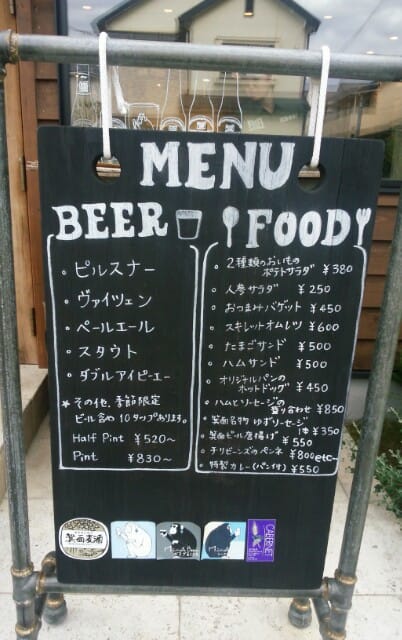 MENU
BEER
ピルスナー
ヴァイツェン
ペールエール
スタウト
ダブルアイピーエー
★その他、季節限定
ビール含め10タップあります。
Half Pint ¥520〜
Pint ¥830〜
FOOD
2種類のおいもの
ポテトサラダ ¥380
人参サラダ ¥250
おつまみバゲット ¥450
スキレットオムレツ ¥600
たまごサンド ¥500
ハムサンド ¥500
オリジナルパンの
ホットドッグ ¥450
ハムとソーセージの
盛り合わせ ¥850
箕面名物 ゆずソーセージ
1本 ¥350
箕面ビール唐揚げ ¥550
チリビーンズのペンネ ¥800 etc…
特製カレー(パン付き) ¥550
箕面麦酒
CABERNET